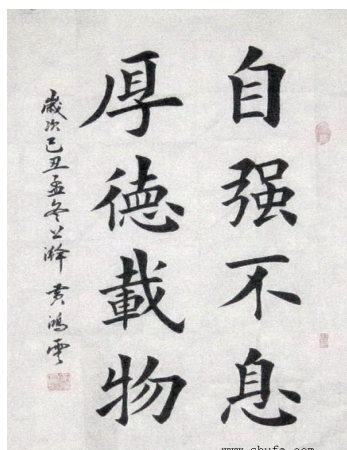 自强不息
厚德載物
歲次己丑孟冬上澣 黄鴻雲
www.shufa.com